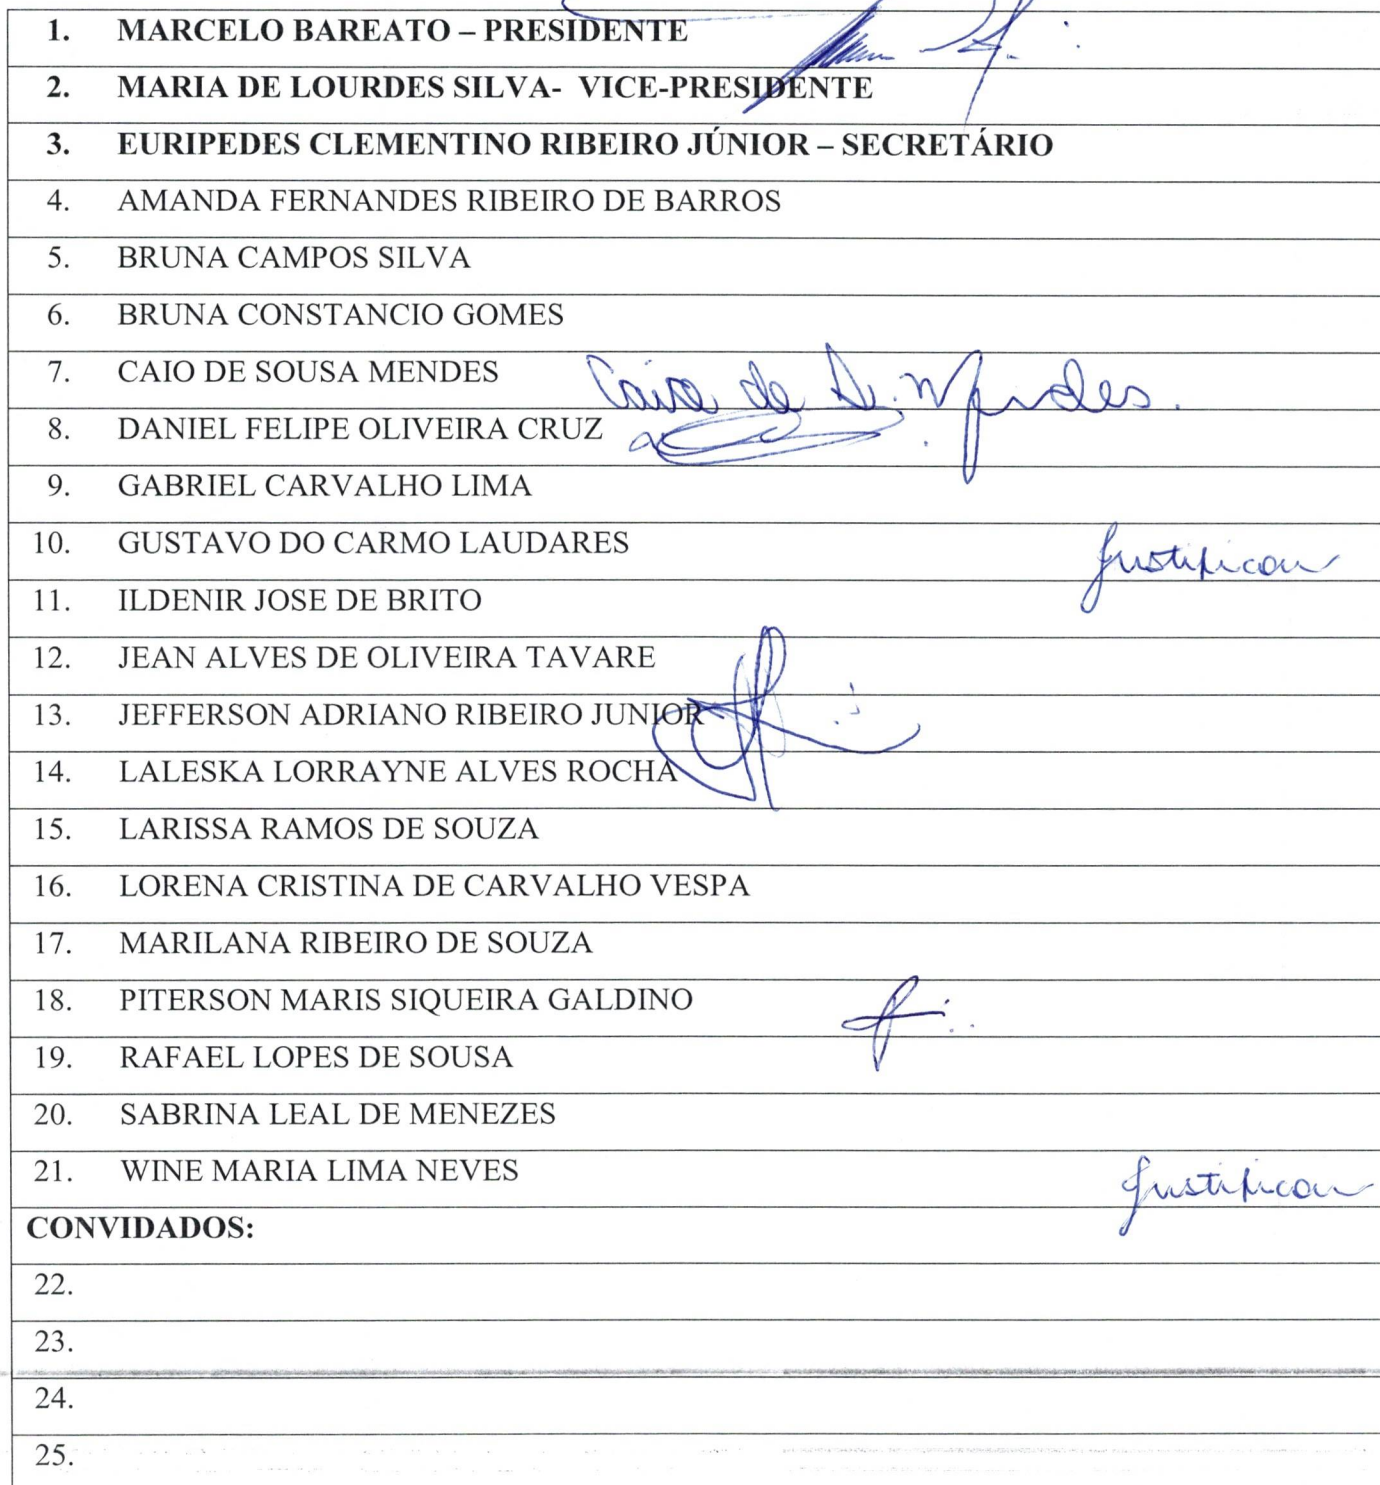 1. MARCELO BAREATO – PRESIDENTE
2. MARIA DE LOURDES SILVA- VICE-PRESIDENTE
3. EURIPEDES CLEMENTINO RIBEIRO JÚNIOR – SECRETÁRIO
4. AMANDA FERNANDES RIBEIRO DE BARROS
5. BRUNA CAMPOS SILVA
6. BRUNA CONSTANCIO GOMES
7. CAIO DE SOUSA MENDES
8. DANIEL FELIPE OLIVEIRA CRUZ
9. GABRIEL CARVALHO LIMA
10. GUSTAVO DO CARMO LAUDARES Justificou
11. ILDENIR JOSE DE BRITO
12. JEAN ALVES DE OLIVEIRA TAVARE
13. JEFFERSON ADRIANO RIBEIRO JUNIOR
14. LALESKA LORRAYNE ALVES ROCHA
15. LARISSA RAMOS DE SOUZA
16. LORENA CRISTINA DE CARVALHO VESPA
17. MARILANA RIBEIRO DE SOUZA
18. PITERSON MARIS SIQUEIRA GALDINO
19. RAFAEL LOPES DE SOUSA
20. SABRINA LEAL DE MENEZES
21. WINE MARIA LIMA NEVES Justificou
CONVIDADOS:
22.
23.
24.
25.